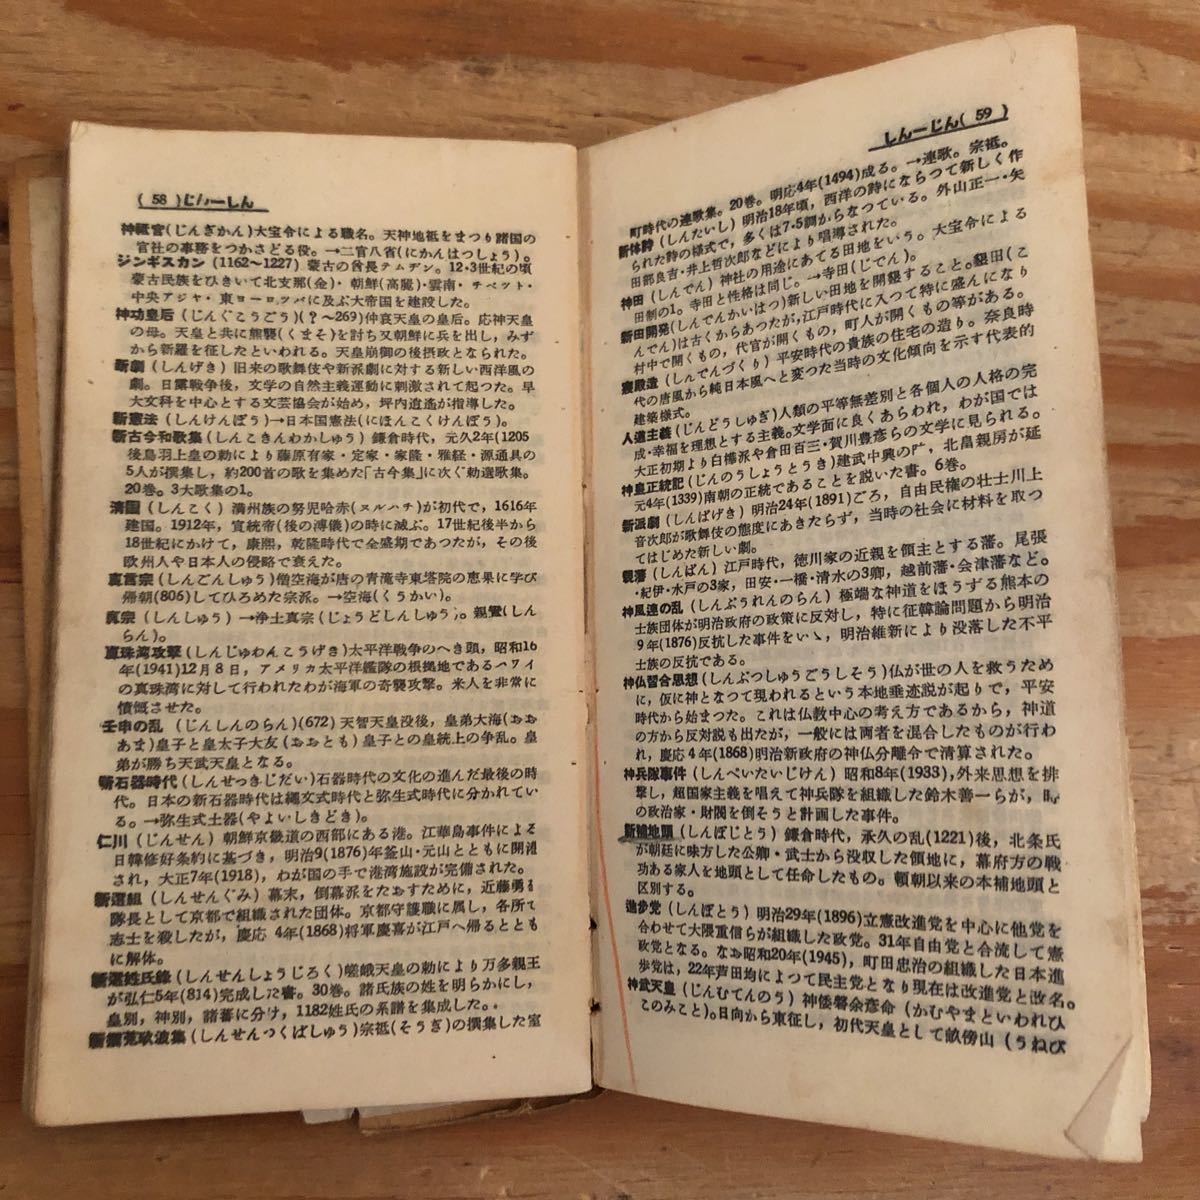 ( 58 )じんーしん
神祗官(じんぎかん)大宝令による職名。天神地祗をまつり諸国の
官社の事務をつかさどる役。→二官八省(にかんはつしょう)。
ジンギスカン(1162〜1227)蒙古の酋長テムヂン。12・3世紀の頃
蒙古民族をひきいて北支那(金)・朝鮮(高麗)・雲南・チベット・
中央アジヤ・東ヨーロッパに及ぶ大帝国を建設した。
神功皇后(じんぐこうごう)(?〜269)仲哀天皇の皇后。応神天皇
の母。天皇と共に熊襲(くまそ)を討ち又朝鮮に兵を出し,みず
から新羅を征したといわれる。天皇崩御の後摂政となられた。
新劇(しんげき)旧来の歌舞伎や新派劇に対する新しい西洋風の
劇。日露戦争後,文学の自然主義運動に刺激されて起つた。早
大文科を中心とする文芸協会が始め,坪内逍遙が指導した。
新憲法(しんけんぽう)→日本国憲法(にほんこくけんぽう)。
新古今和歌集(しんこきんわかしゅう)鎌倉時代,元久2年(1205
後鳥羽上皇の勅により藤原有家・定家・家隆・雅経・源通具の
5人が撰集し,約200首の歌を集めた「古今集」に次ぐ勅選歌集。
20巻。3大歌集の1。
清国(しんこく)満州族の努児哈赤(ヌルハチ)が初代で,1616年
建国。1912年,宣統帝(後の溥儀)の時に滅ぶ。17世紀後半から
18世紀にかけて,康熙,乾隆時代で全盛期であつたが,その後
欧州人や日本人の侵略で衰えた。
真言宗(しんごんしゅう)僧空海が唐の青滝寺東塔院の恵果に学び
帰朝(806)してひろめた宗派。→空海(くうかい)。
真宗(しんしゅう)→浄土真宗(じょうどしんしゅう)。親鸞(しん
らん)。
真珠湾攻撃(しんじゅわんこうげき)太平洋戦争のへき頭,昭和16
年(1941)12月8日,アメリカ太平洋艦隊の根拠地であるハワイ
の真珠湾に対して行われたわが海軍の奇襲攻撃。米人を非常に
憤慨させた。
壬申の乱(じんしんのらん)(672)天智天皇没後,皇弟大海(おお
あま)皇子と皇太子大友(おおとも)皇子との皇統上の争乱。皇
弟が勝ち天武天皇となる。
新石器時代(しんせっきじだい)石器時代の文化の進んだ最後の時
代。日本の新石器時代は縄文式時代と弥生式時代に分かれてい
る。→弥生式土器(やよいしきどき)。
仁川(じんせん)朝鮮京畿道の西部にある港。江華島事件による
日韓修好条約に基づき,明治9(1876)年釜山・元山とともに開港
され,大正7年(1918),わが国の手で港湾施設が完備された。
新選組(しんせんぐみ)幕末,倒幕派をたおすために,近藤勇を
隊長として京都で組織された団体。京都守護職に属し,各所で
志士を殺したが,慶応4年(1868)将軍慶喜が江戸へ帰るととも
に解体。
新選姓氏録(しんせんしょうじろく)嵯峨天皇の勅により万多親王
が弘仁5年(814)完成した書。30巻。諸氏族の姓を明らかにし,
皇別,神別,諸蕃に分け,1182姓氏の系譜を集成した。
新撰菟玖波集(しんせんつくばしゅう)宗祗(そうぎ)の撰集した室
しんーじん( 59 )
町時代の連歌集。20巻。明応4年(1494)成る。→連歌。宗祗。
新体詩(しんたいし)明治18年頃,西洋の詩にならつて新しく作
られた詩の様式で,多くは7・5調からなつている。外山正一・矢
田部良吉・井上哲次郎などにより唱導された。
神田(しんでん)神社の用途にあてる田地をいう。大宝令による
田制の1。寺田と性格は同じ。→寺田(じでん)。
新田開発(しんでんかいはつ)新しい田地を開墾すること。墾田(こ
んでん)は古くからあつたが,江戸時代に入つて特に盛んになり
村中で開くもの,代官が開くもの,町人が開くもの等がある。
寝殿造(しんでんづくり)平安時代の貴族の住宅の造り。奈良時
代の唐風から純日本風へと変つた当時の文化傾向を示す代表的
建築様式。
人道主義(じんどうしゅぎ)人類の平等無差別と各個人の人格の完
成・幸福を理想とする主義。文学面に良くあらわれ,わが国では
大正初期より白樺派や倉田百三・賀川豊彦らの文学に見られる。
神皇正統記(じんのうしょうとうき)建武中興の,北畠親房が延
元4年(1339)南朝の正統であることを説いた書。6巻。
新派劇(しんぱげき)明治24年(1891)ごろ,自由民権の壮士川上
音次郎が歌舞伎の態度にあきたらず,当時の社会に材料を取つ
てはじめた新しい劇。
親藩(しんぱん)江戸時代,徳川家の近親を領主とする藩。尾張
・紀伊・水戸の3家,田安・一橋・清水の3卿,越前藩・会津藩など。
神風連の乱(しんぷうれんのらん)極端な神道をほうずる熊本の
士族団体が明治政府の政策に反対し,特に征韓論問題から明治
9年(1876)反抗した事件をいゝ,明治維新により没落した不平
士族の反抗である。
神仏習合思想(しんぶつしゅうごうしそう)仏が世の人を救うため
に,仮に神となつて現われるという本地垂迹説が起りで,平安
時代から始まつた。これは仏教中心の考え方であるから,神道
の方から反対説も出たが,一般には両者を混合したものが行わ
れ,慶応4年(1868)明治新政府の神仏分離令で清算された。
神兵隊事件(しんぺいたいじけん)昭和8年(1933),外来思想を排
撃し,超国家主義を唱えて神兵隊を組織した鈴木善一らが,時
の政治家・財閥を倒そうと計画した事件。
新補地頭(しんぽじとう)鎌倉時代,承久の乱(1221)後,北条氏
が朝廷に味方した公卿・武士から没収した領地に,幕府方の戦
功ある家人を地頭として任命したもの。頼朝以来の本補地頭と
区別する。
進歩党(しんぽとう)明治29年(1896)立憲改進党を中心に他党を
合わせて大隈重信らが組織した政党。31年自由党と合流して憲
政党となる。なお昭和20年(1945),町田忠治の組織した日本進
歩党は,22年芦田均によつて民主党となり現在は改進党と改名。
神武天皇(じんむてんのう)神倭磐余彦命(かむやまといわれひ
このみこと)。日向から東征し,初代天皇として畝傍山(うねび